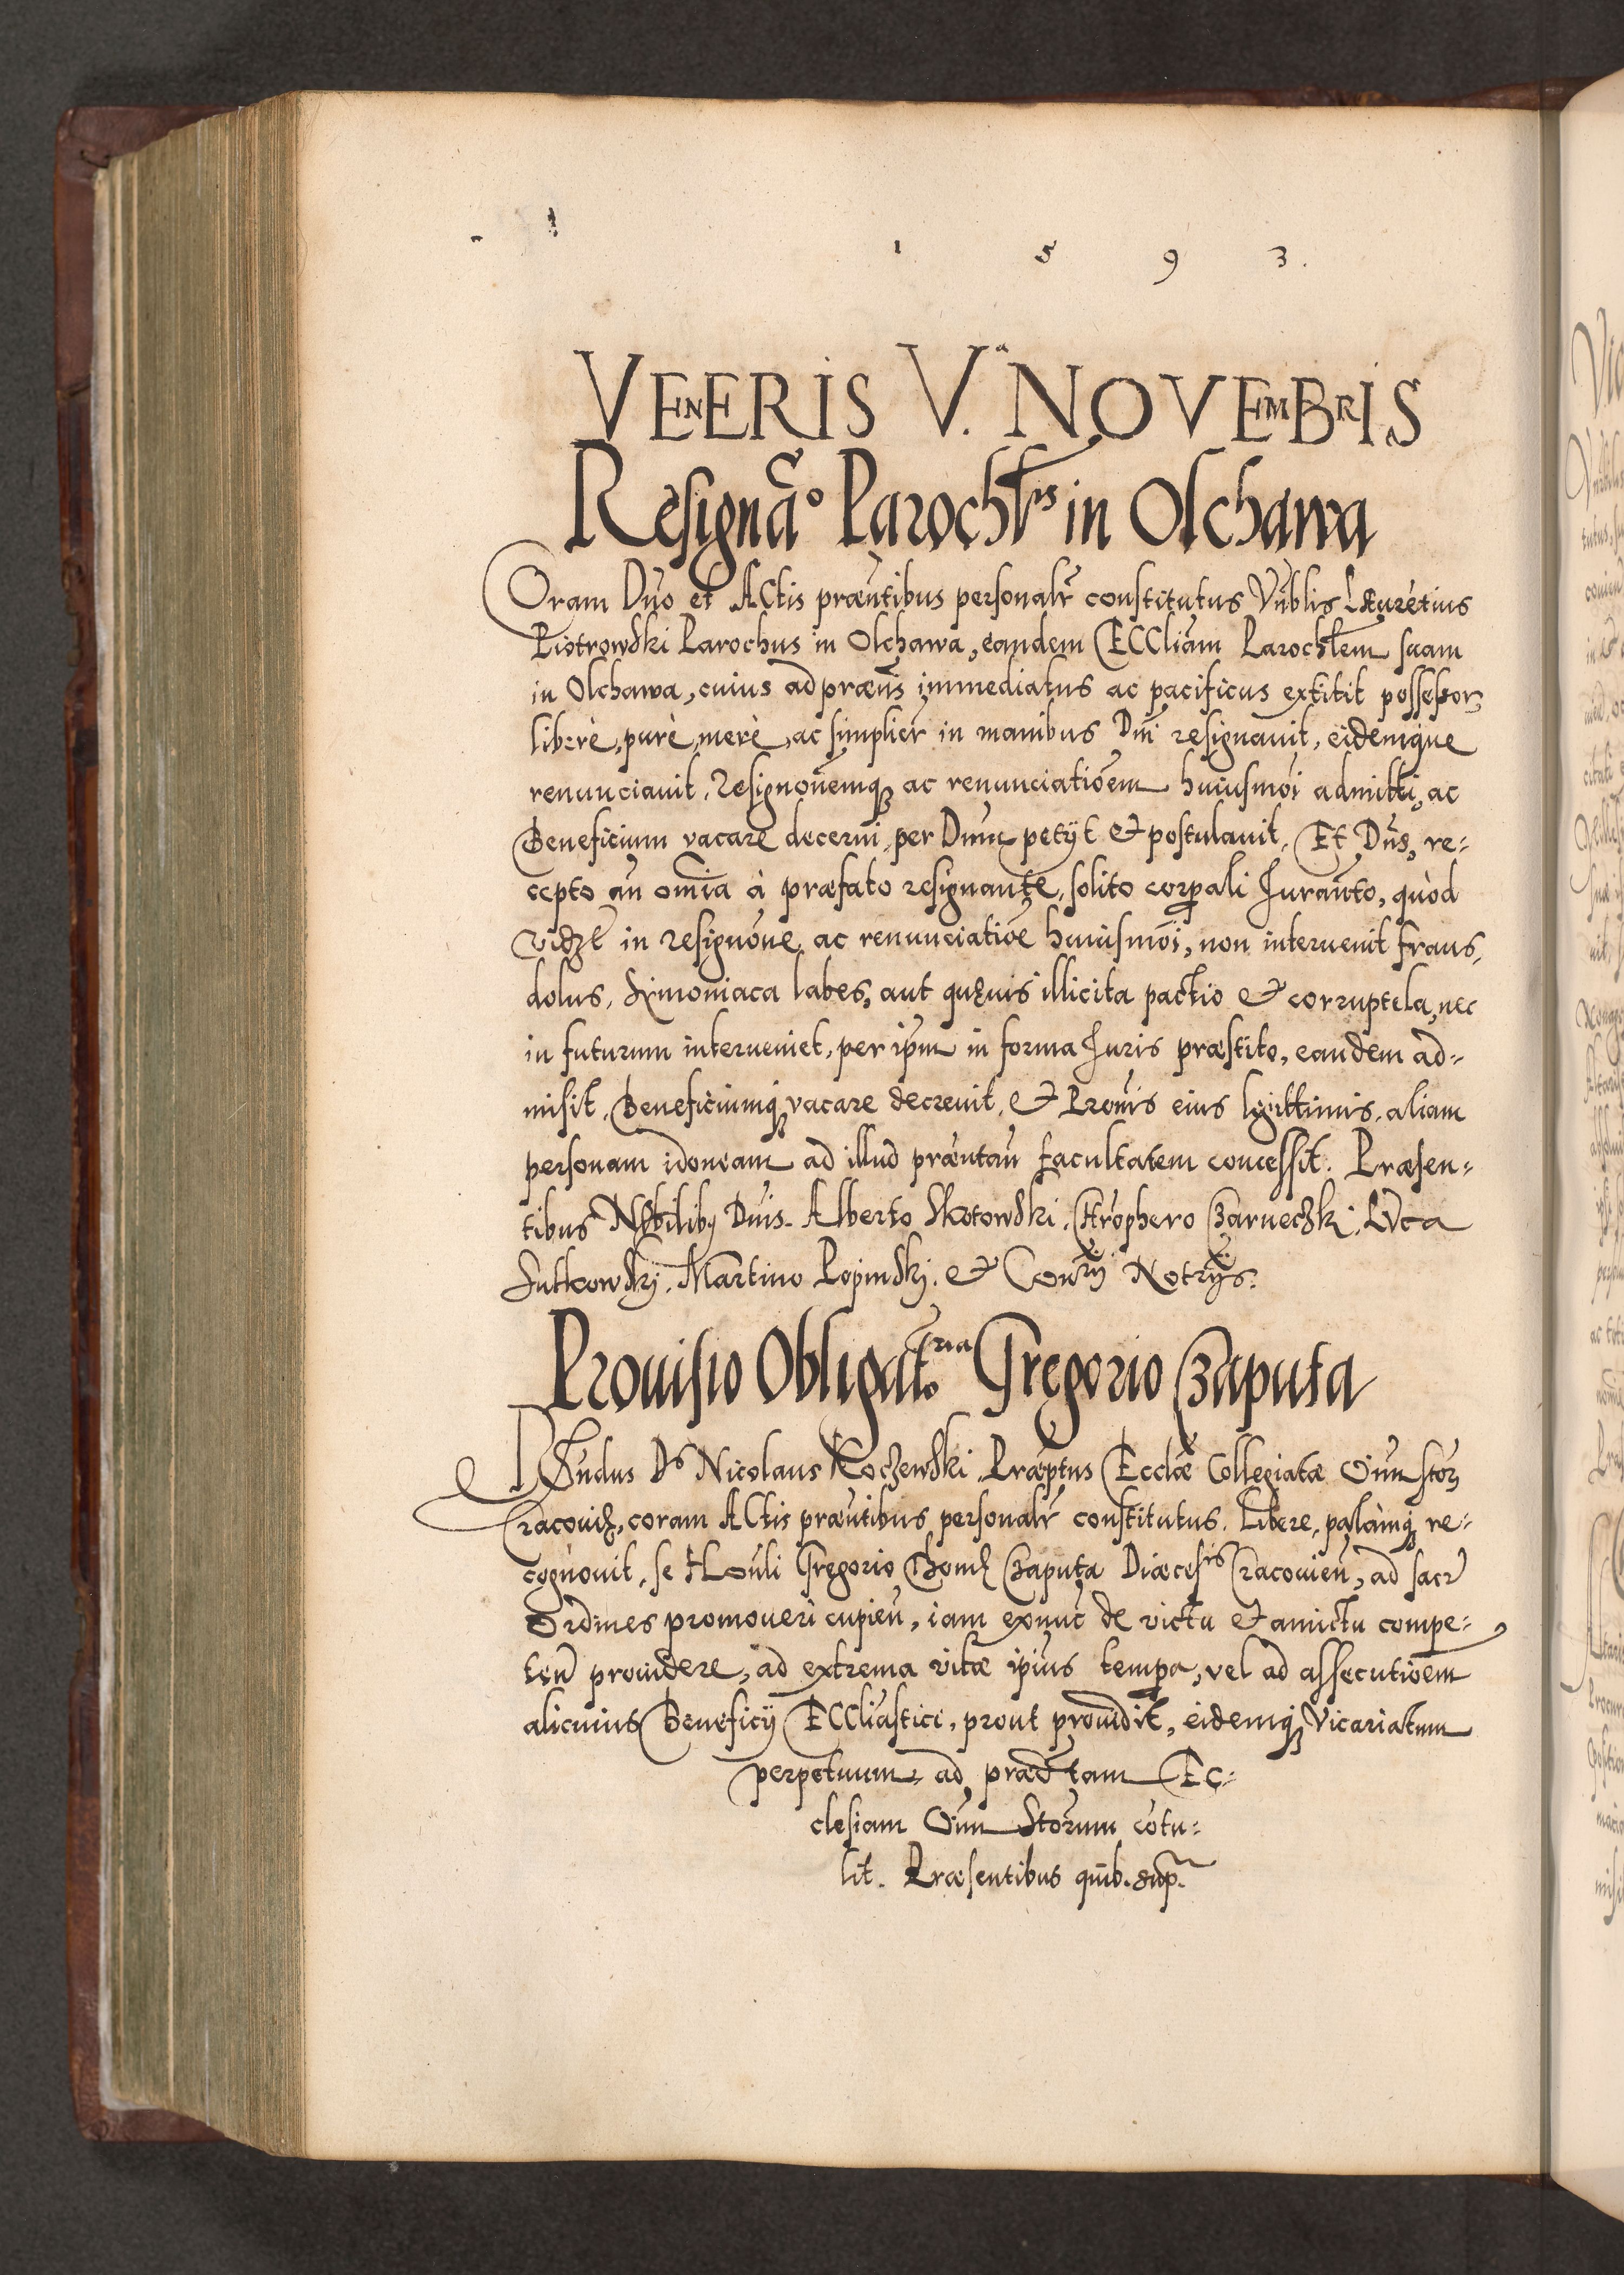 1 5 9 3.
VENERIS V.ª NOVEMBRIS
Resignão Parochłis in Olchawa
Coram Dno et ACtis præntibus personalr constitutus Vnblis Laurētius
Piotrowski Parochus in Olchawa, eandem ECCliam Parochłem suam
in Olchawa, cuius ad præns immediatus ac pacificus extitit possessor,
liberè, purè, merè, ac simplicr in manibus Dni resignauit, eidemque
renunciauit. Resignoñemq; ac renunciatiõem huiusmõi admitti, ac
Beneficium vacare decerni, per Dnum petijt et postulauit. Et Dns, re=
cepto añ omīa à præfato resignante, solito corporali Iuranto, quòd
vidzt in resignõne, ac renunciatiõe huiusmõi, non interuenit fraus,
dolus, Simoniaca labes, aut quęuis illicita pactio et corruptela, nec
in futurum interueniet, per ipm in forma Iuris præstito, eandem ad=
misit. Beneficiumq; vacare decreuit, et Pronis eius legittimis, aliam
personam idoneam ad illud præntañ facultatem concessit. Præsen=
tibus Nobilib9 Dnis. Alberto Skotowski, Chrophero Czarneczki, Luca
Sutkowskj, Martino Popinskj. et Conrij Notrijs.
Prouisio Obligatoria Gregorio Czaputa
RNdus Ds Nicolaus Koczewski, Præptus Ecclæ Collegiatæ Oium Storz
Cracouię, coram ACtis præntibus personalr constitutus. Libere, palàmq; re=
cognouit, se Honli Gregorio Thomę Czaputa Diæcesis Cracouien, ad sacr
Ordines promoueri cupien, iam exnuc de victu et amictu compe=
ten prouidere, ad extrema vitæ ipius tempa, vel ad assecutiõem
alicuius Beneficij ECCliastici, prout prouidit, eidemq; Vicariatum
perpetuum, ad prædtam Ec=
clesiam Oium Storum cotu=
lit. Præsentibus quib. sup.